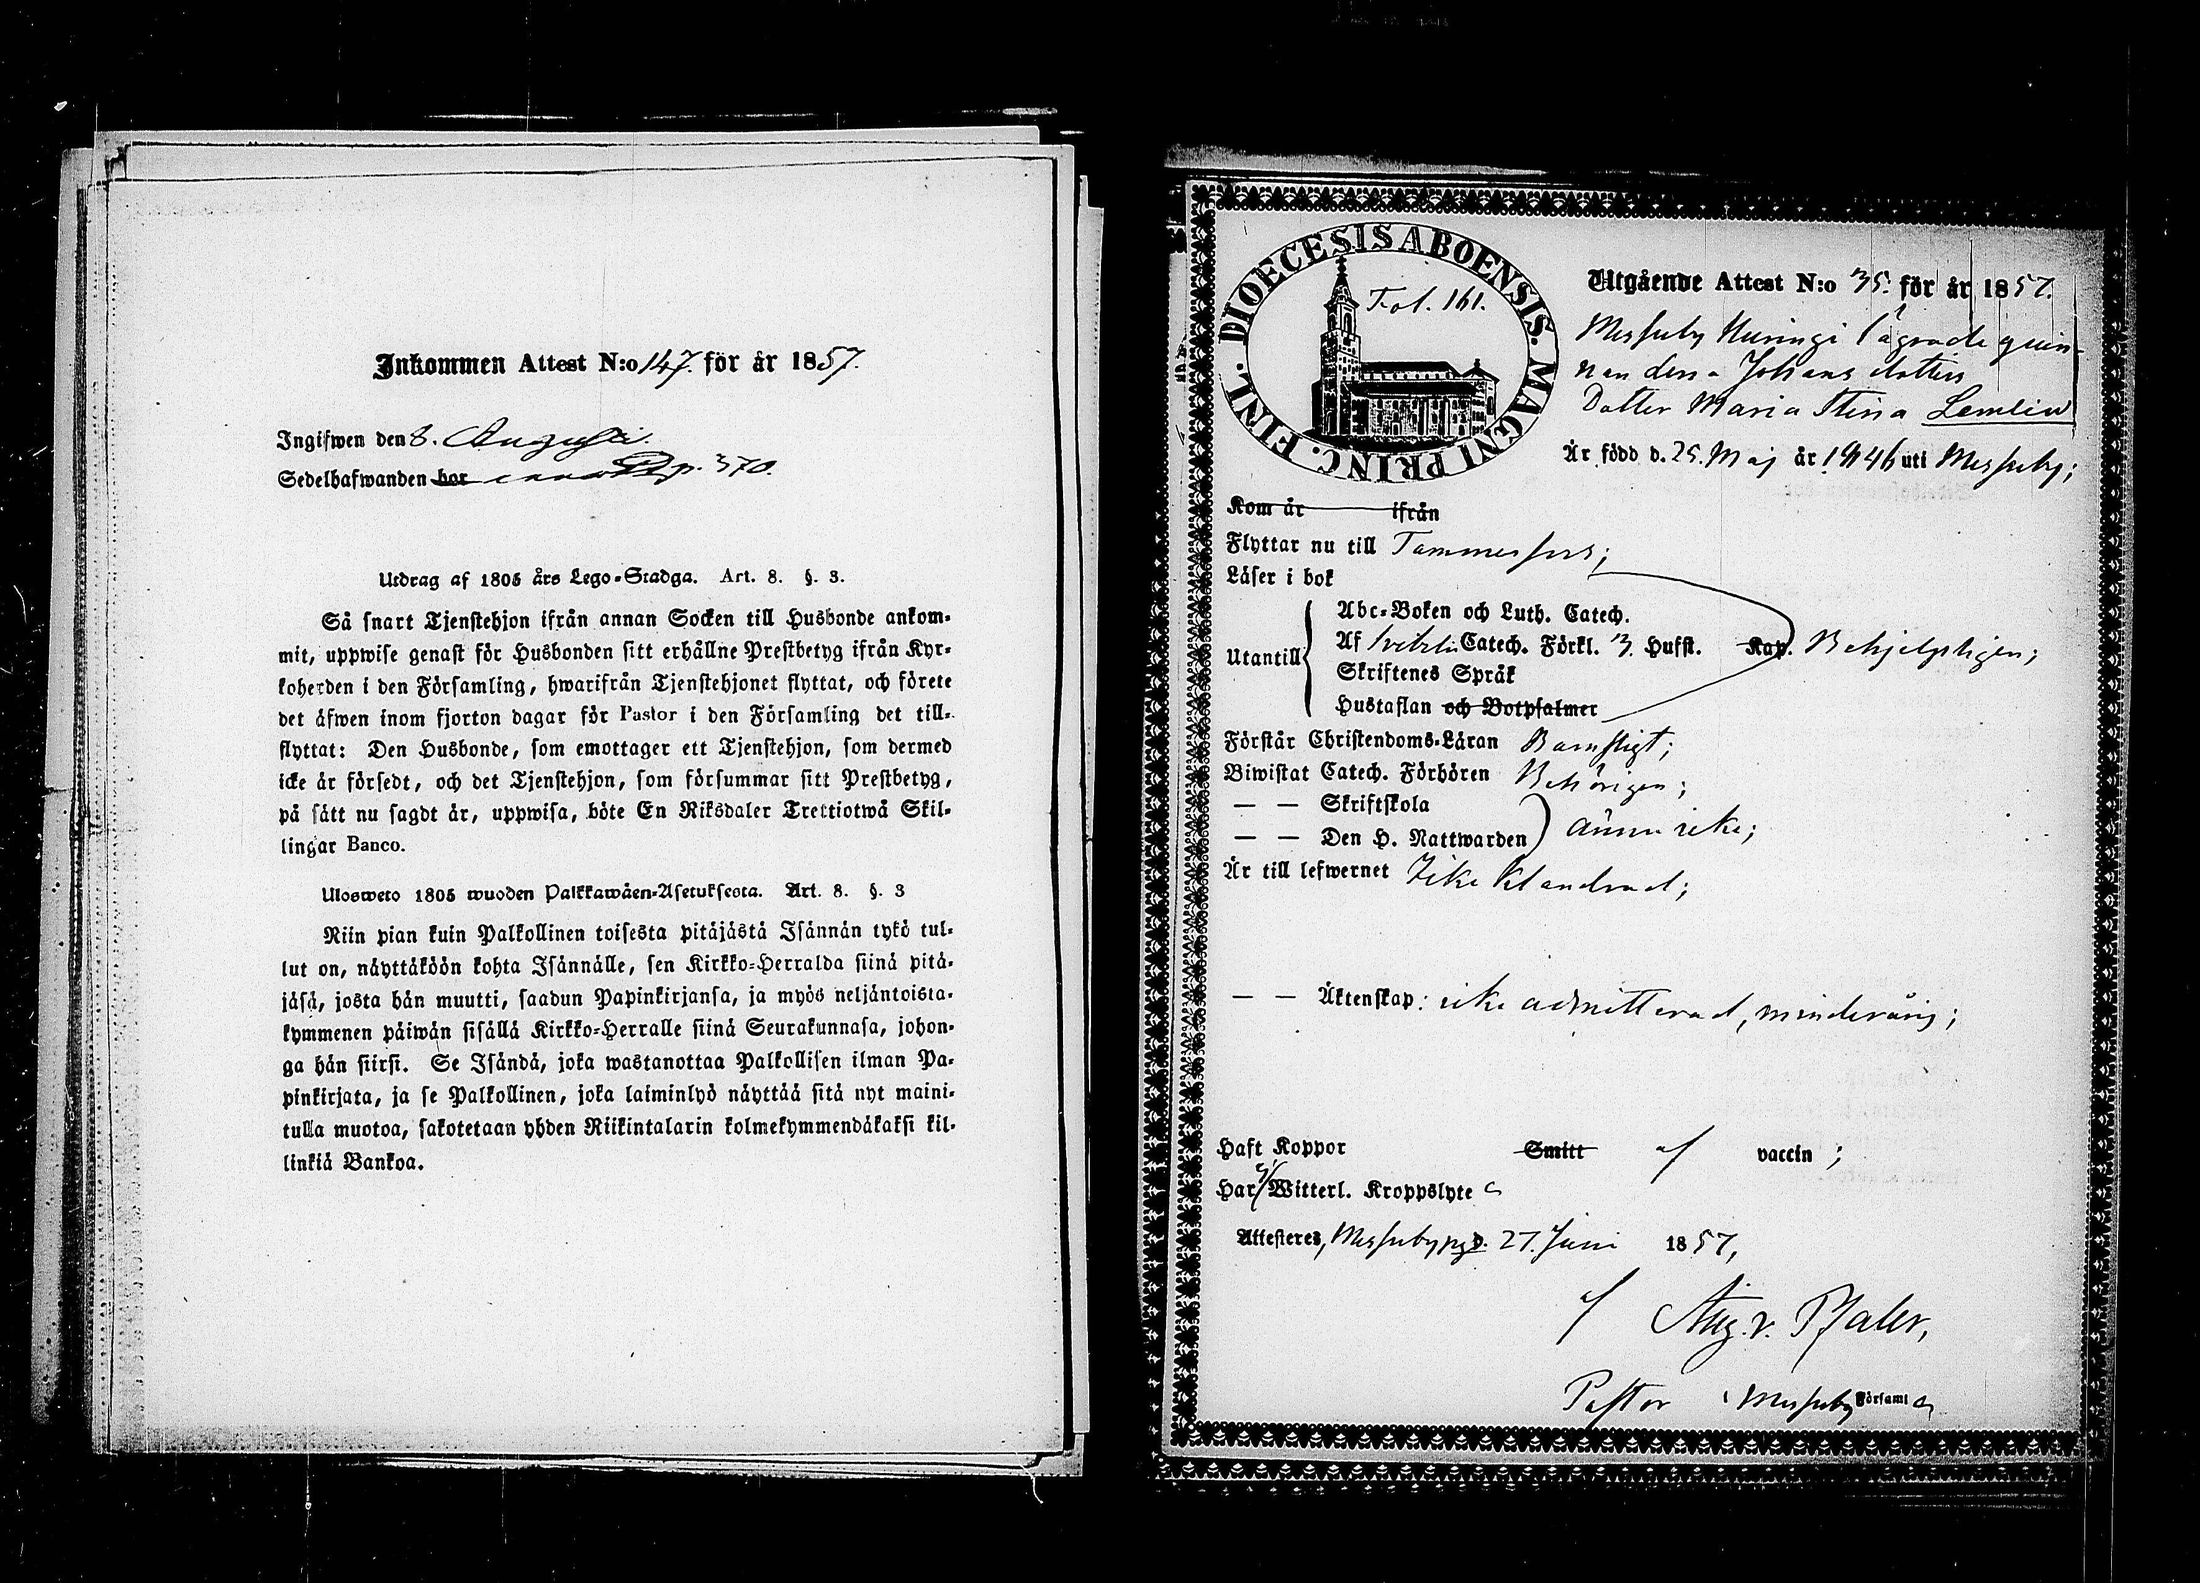 Inkommen Attest N:o 147. för år 1857.
Ingifwen den 8. Augusti.
Sedelhafwanden bor p. 370.
Utdrag af 1805 års Lego-Stadga. Art. 8. §. 3.
Så snart Tjenstehjon ifrån annan Socken till Husbonde ankom-
mit, uppwise genast för Husbonden sitt erhållne Prestbetyg ifrån Kyr-
koherden i den Församling, hwarifrån Tjenstehjonet flyttat, och förete
det äfwen inom fjorton dagar för Pastor i den Församling det till-
flyttat: Den Husbonde, som emottager ett Tjenstehjon, som dermed
icke är försedt, och det Tjenstehjon, som försummar sitt Prestbetyg,
på sätt nu sagdt är, uppwisa, böte En Riksdaler Trettiotwå Skil-
lingar Banco.
Ulosweto 1805 wuoden Palkkawäen-Asetuksesta. Art. 8. §. 3
Niin pian kuin Palkollinen toisesta pitäjästä Isännän tykö tul-
lut on, näyttäköön kohta Isännälle, sen Kirkko-Herralda siinä pitä-
jäsä, josta hän muutti, saadun Papinkirjansa, ja myös neljäntoista-
kymmenen päiwän sisällä Kirkko-Herralle siinä Seurakunnasa, johon-
ga hän siirsi. Se Isändä, joka wastanottaa Palkollisen ilman Pa-
pinkirjata, ja se Palkollinen, joka laiminlyö näyttää sitä nyt maini-
tulla muotoa, sakotetaan yhden Riikintalarin kolmekymmendäkaksi kil-
linkiä Bankoa.
DIOECESIS ABOENSIS. MAGNI PRINC. FINL.
Fol. 161.
Utgående Attest N:o 35. för år 1857.
Messuby lägrade qvin-
nan Johansdotters
Dotter Maria Stina Lemlin
Är född d. 25. Maj år 1846 uti Messuby;
Kom år ifrån
Flyttar nu till Tammerfors;
Läser i bok
Utantill
Abc-Boken och Luth. Catech.
Af Svebelii Catech. Förkl. 3. Hufst. Kap. Behjelpligen;
Skriftenes Språk
Hustaflan och Botpsalmer
Förstår Christendoms-Läran Barnsligt;
Biwistat Catech. Förhören Behörigen;
— — Skriftskola
— — Den H. Nattwarden ännu icke;
Är till lefwernet Icke klandrad;
— — Äktenskap: icke admitterad, minderårig;
Haft Koppor Smitt af vaccin;
Har ej Witterl. Kroppslyte
Attesteres, Messuby pgd. 27. Juni 1857,
af Aug. v. Pfaler,
Pastor i Messuby Församl